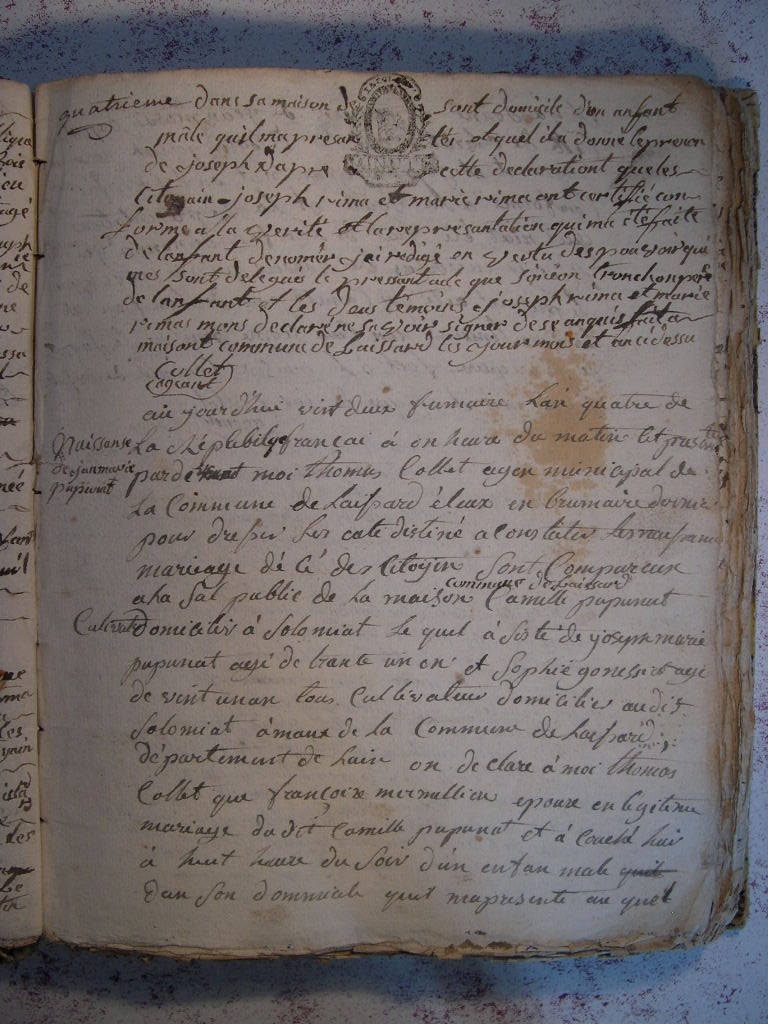 quatrieme dans sa maison sont domicile d'un anfant
mâle quil ma presan tté et quel il a donné le prenon
de joseph d'apre cette declarationt que les
Citoyain joseph rima et marie rima ont certifié con
forme a la verité et la representation qui ma été faite
de lanfant denomér jai redigé en vertu des pouvoir qui
mes sont delegués le pressant acte que siméon tronchon pere
de lanfant et les deus témoins joseph rima et marie
rimas mons declaré ne savoir signer de se anquis fait a
maisont commune de Laissard les jour mois et an ci dessu
Collet
agant
au jourd'hui vint deux frumaire Lan quatre de
Naissanse
de jan marie
pupunat
La Républilye françai à on heure du matin
par de moi thomas Collet agen municipal de
La Commune de Laissard éleux en brumaire dernie
pour dresser les cate destiné a constater les naissance
mariage dé cé des Citoyin sont Compareux
commune de Laissard
a la sal public de la maison Camille pupunat
Cultivateur domicilier à Solomiat Le quel à siste de joseph marie
pupunat agé de trante un en et Sophie agé
de vint un an tous Cultivateur domicilier au dit
Solomiat amaux de la Commune de Laissard,
département de Lain on de clare à moi thomas
Collet que françoise mermillien epouse en legitime
mariage du dit Camille pupunat et à couchá hui
à huit heure du soir d'un enfan male quil
dan son dommicile quil ma presenté au quel